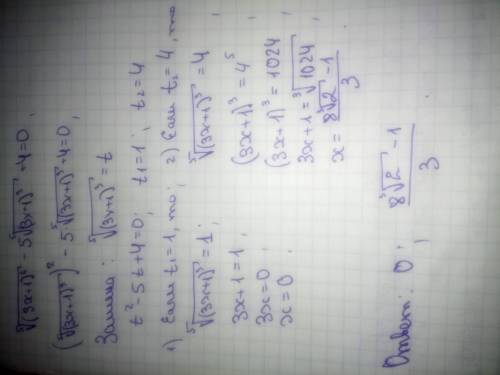 ⁵√(3x+1)⁶ - 5 ⁵√(3x+1)³ + 4 = 0,
(⁵√(3x+1)³)² - 5 ⁵√(3x+1)³ + 4 = 0,
Замена: ⁵√(3x+1)³ = t
t² - 5t + 4 = 0; t₁ = 1; t₂ = 4
1) Если t₁ = 1, то; 2) Если t₂ = 4, то
⁵√(3x+1)³ = 1; ⁵√(3x+1)³ = 4,
3x+1 = 1, (3x+1)³ = 4⁵
3x = 0, (3x+1)³ = 1024
x = 0. 3x+1 = ³√1024
x = (8 ³√2 - 1)/3
Ответ: 0; (8 ³√2 - 1)/3